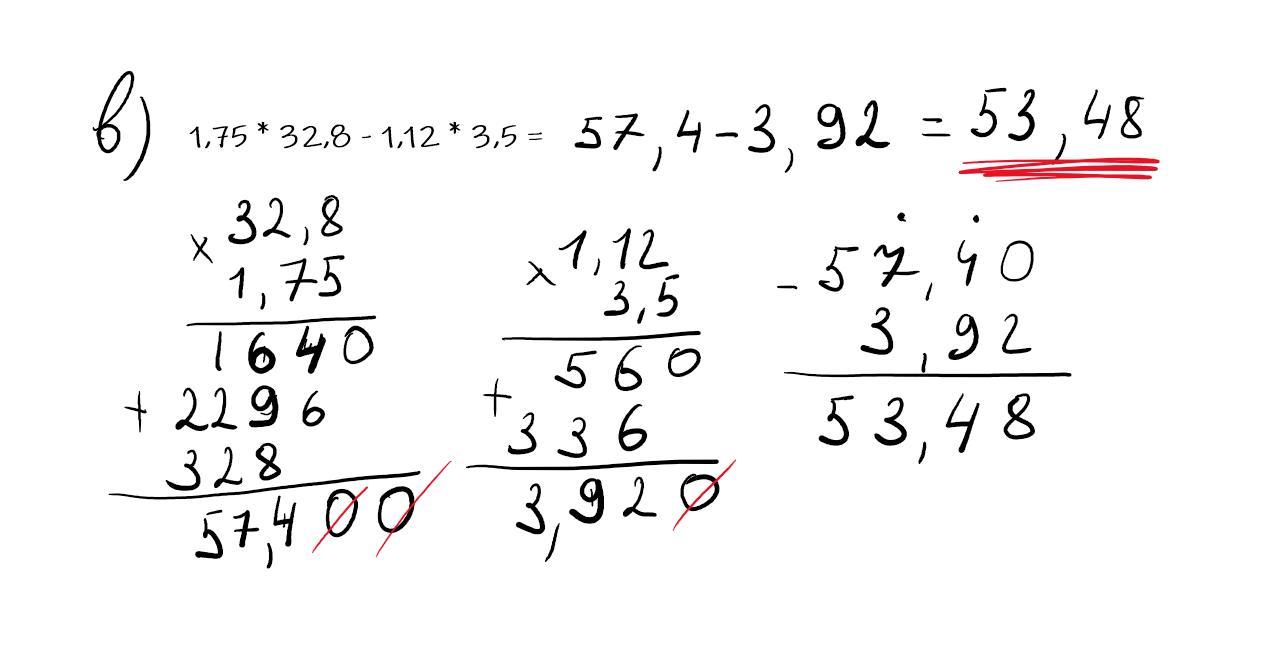 в) 1,75 * 32,8 - 1,12 * 3,5 = 57,4 - 3,92 = 53,48
× 32,8
1,75
1640
+ 2296
328
57,400
× 1,12
3,5
560
+ 336
3,920
- 57,40
3,92
53,48